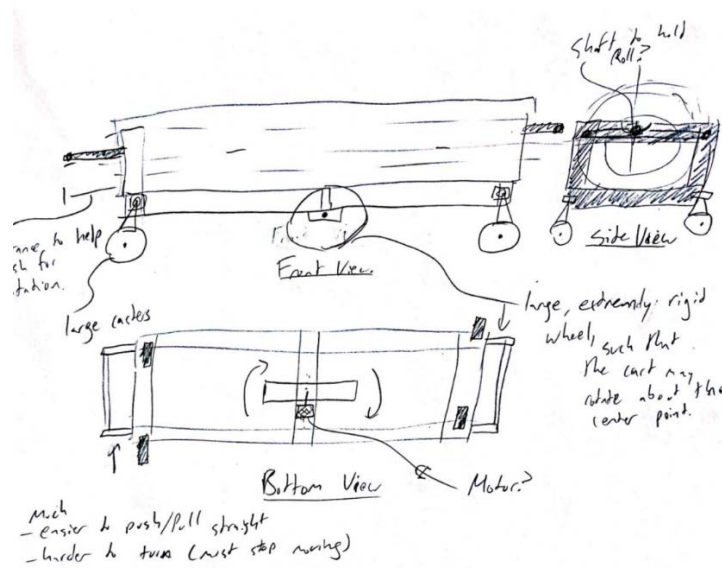 Shaft to hold
Roll?
Side View
to help
for
large casters
Front View
large, extremely rigid
wheel,
such that
the cart may
rotate about the
center point.
Bottom View
Motor?
Much
- easier to push/pull straight
- harder to turn (must stop moving)